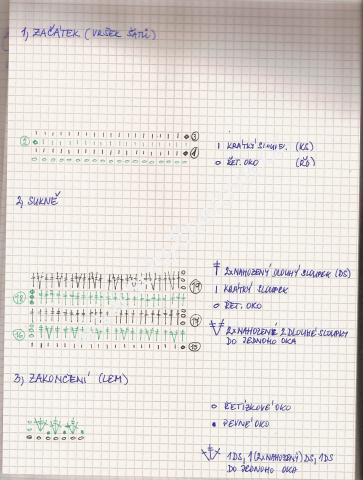 1, ZAČÁTEK (VRŠEK ŠATŮ)
3
2
1
I KRÁTKÝ SLOUP. (KS)
O ŘET. OKO (ŘO)
2, SUKNĚ
18
16
15
2x NAHOZENÝ DLOUHÝ SLOUPEK (DS)
I KRÁTKÝ SLOUPEK
O ŘET. OKO
2x NAHOZENÉ 2 DLOUHÉ SLOUPKY
DO JEDNOHO OKA
3, ZAKONČENÍ (LEM)
O ŘETÍZKOVÉ OKO
• PEVNÉ OKO
1DS, 1(2xNAHOZENÝ)DS, 1DS
DO JEDNOHO OKA